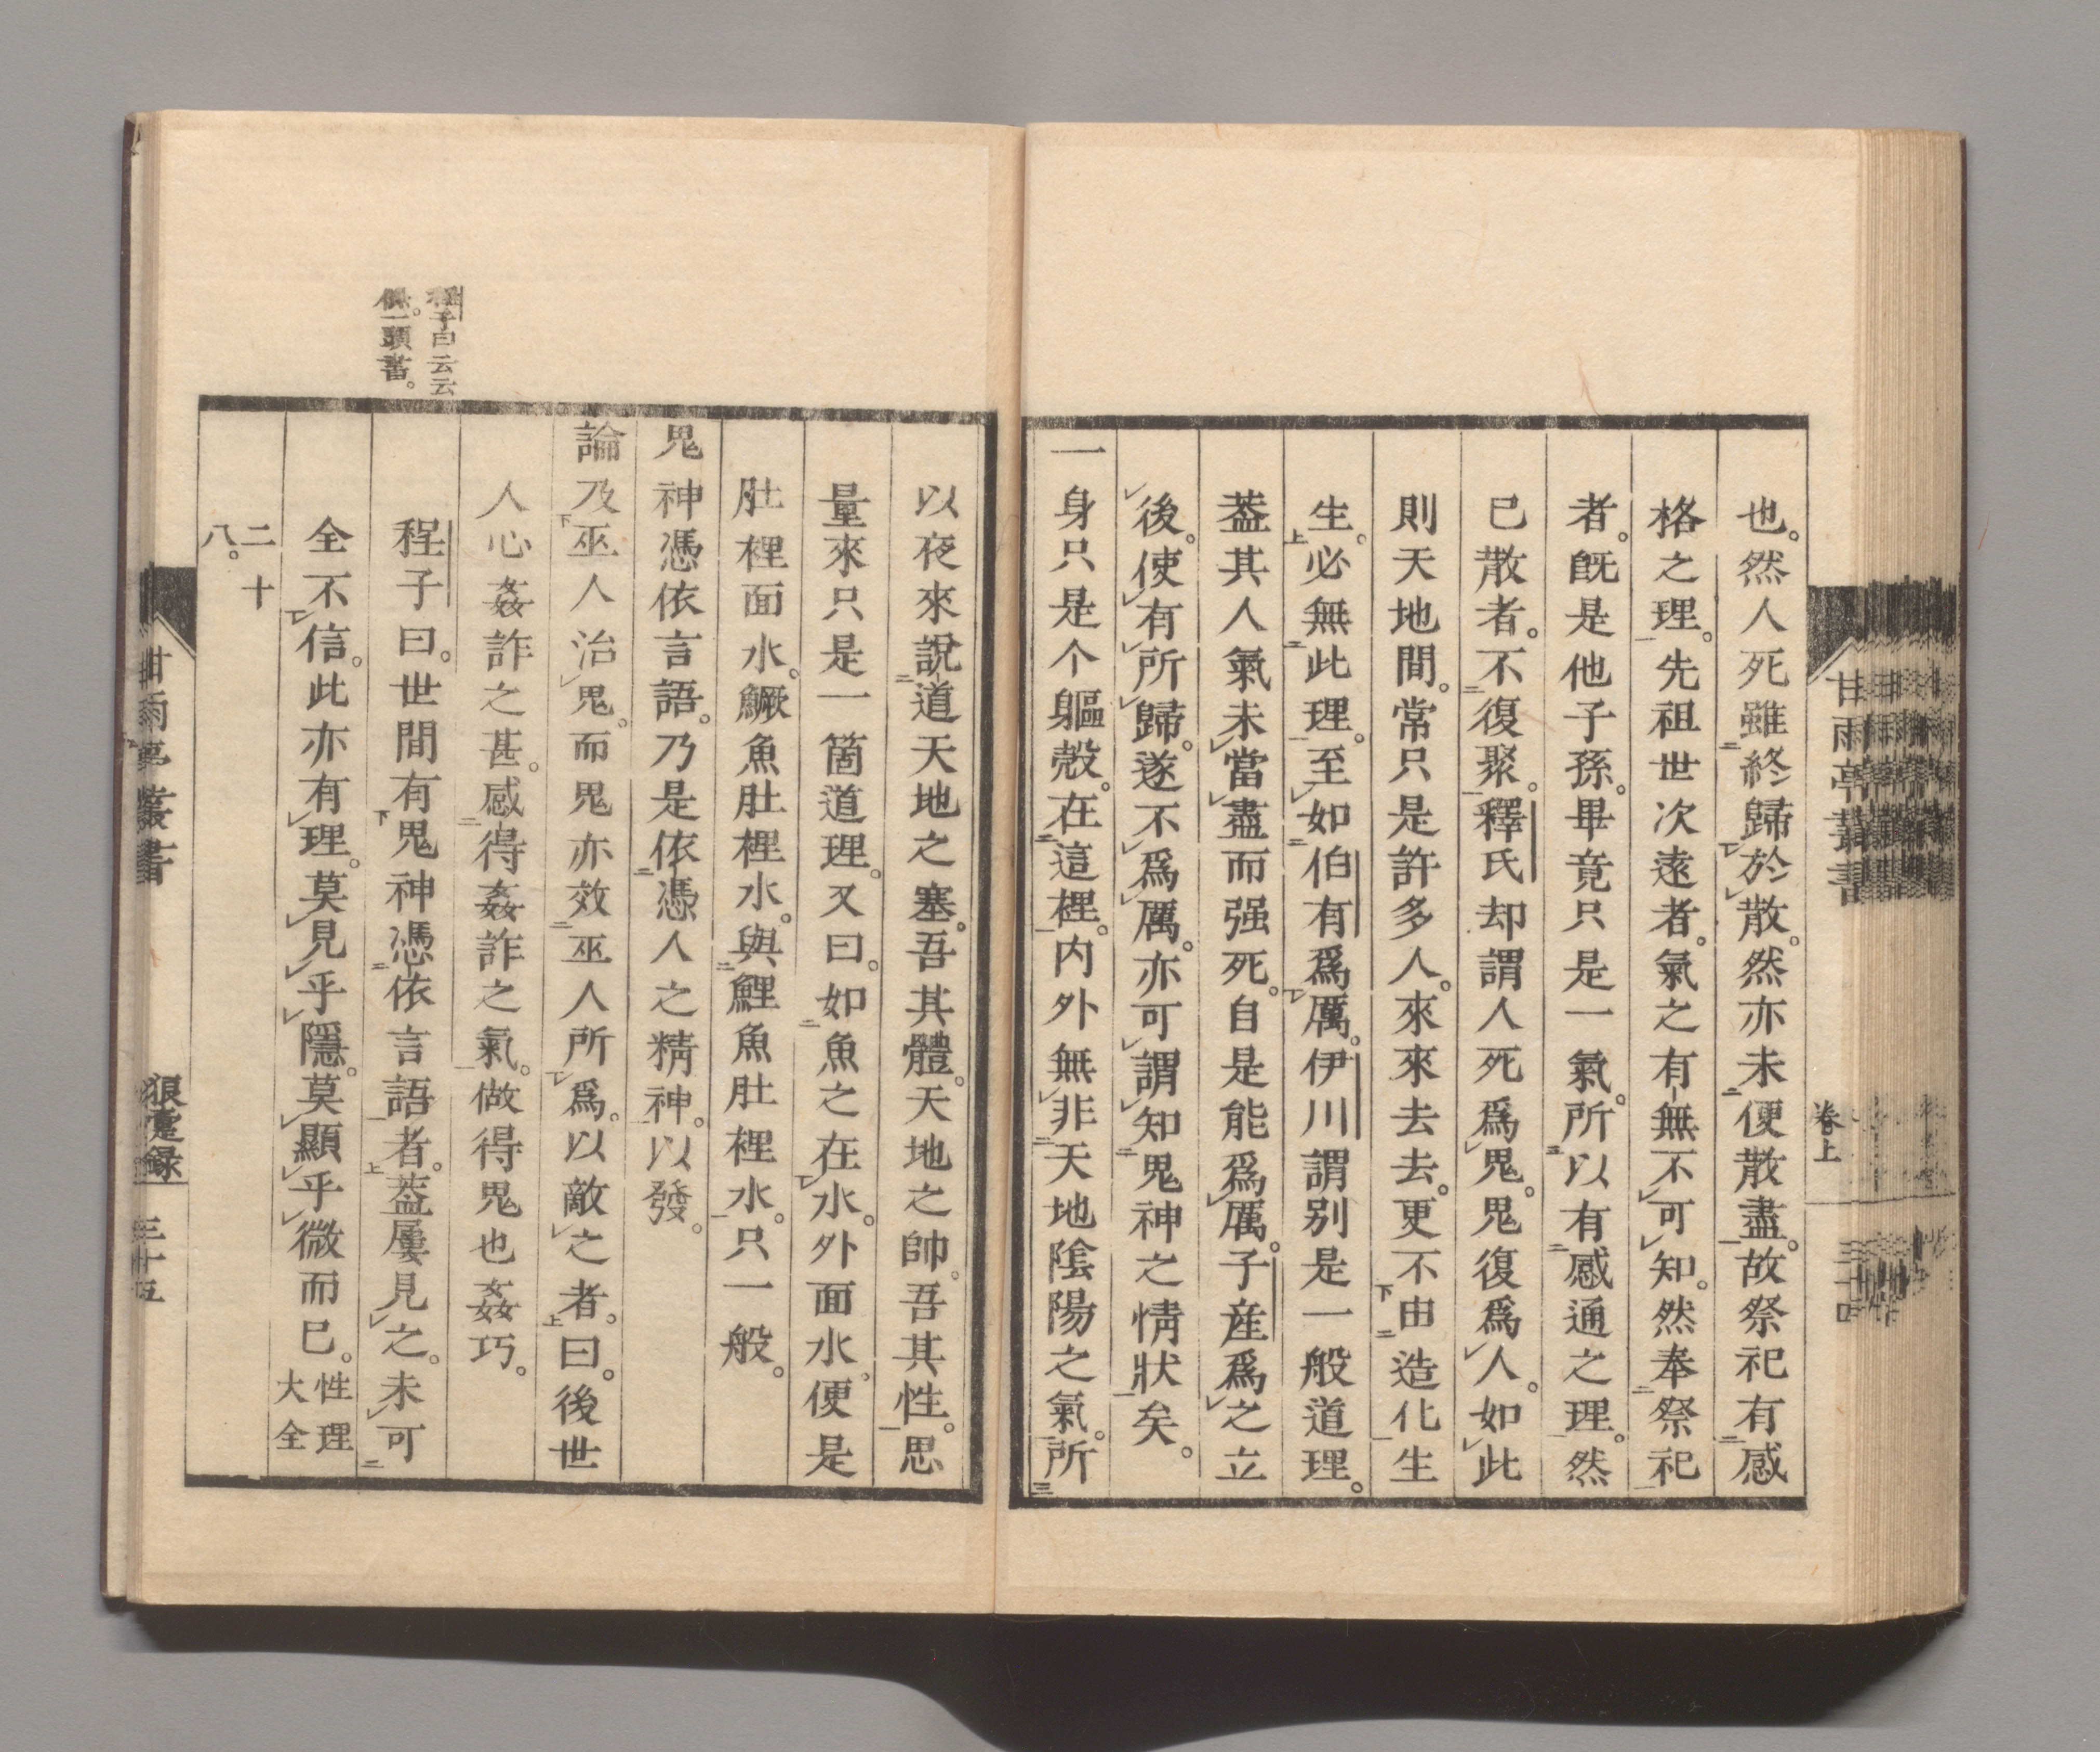 也。然人死雖終歸於散。然亦未便散盡。故祭祀有感
格之理。先祖世次遠者。氣之有無不可知。然奉祭祀
者。既是他子孫。畢竟只是一氣。所以有感通之理。然
已散者。不復聚。釋氏却謂人死爲鬼。鬼復爲人。如此
則天地間。常只是許多人。來來去去。更不由造化生
生。必無此理。至如伯有爲厲。伊川謂別是一般道理。
葢其人氣未當盡而强死。自是能爲厲。子產爲之立
後。使有所歸。遂不爲厲。亦可謂知鬼神之情狀矣。
一身只是个軀殼。在這裡。内外無非天地陰陽之氣。所
甘雨亭叢書
卷上
三十四
以夜來說道天地之塞。吾其體。天地之帥。吾其性。思
量來只是一箇道理。又曰。如魚之在水。外面水。便是
肚裡面水。鱖魚肚裡水。與鯉魚肚裡水。只一般。
鬼神憑依言語。乃是依憑人之精神。以發。
論及巫人治鬼。而鬼亦效巫人所爲。以敵之者。曰。後世
人心姦詐之甚。感得姦詐之氣。做得鬼也姦巧。
程子曰云云
俱一頭書。
程子曰。世間有鬼神憑依言語者。葢屢見之。未可
全不信。此亦有理。莫見乎隱。莫顯乎微而已。性理
大全
二十
八。
甘雨亭叢書
狼疐録
三十五